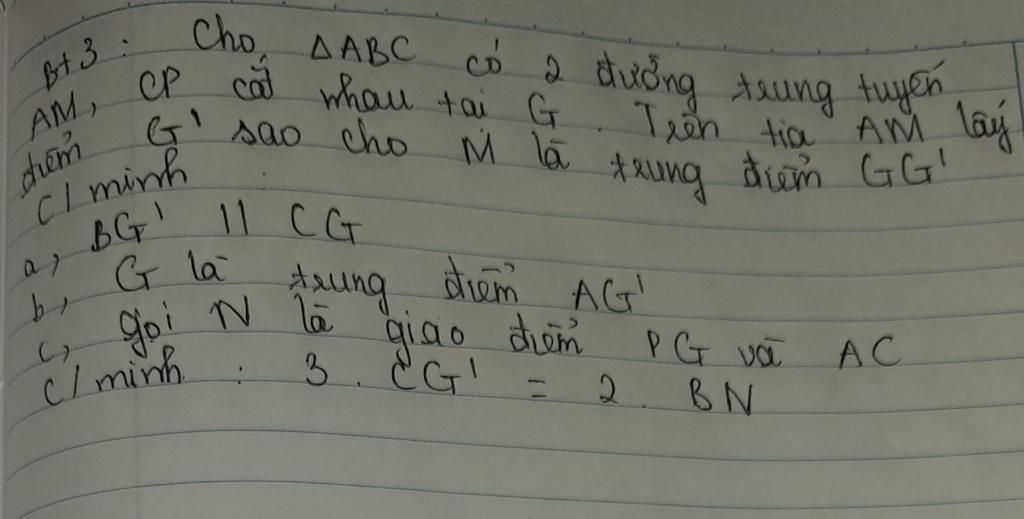 Bt3: Cho ΔABC có 2 đường trung tuyến
AM, CP cắt nhau tại G. Trên tia AM lấy
điểm G' sao cho M là trung điểm GG'
C/minh:
a, BG' // CG
b, G là trung điểm AG'
c, gọi N là giao điểm PG và AC
C/minh: 3. CG' = 2. BN